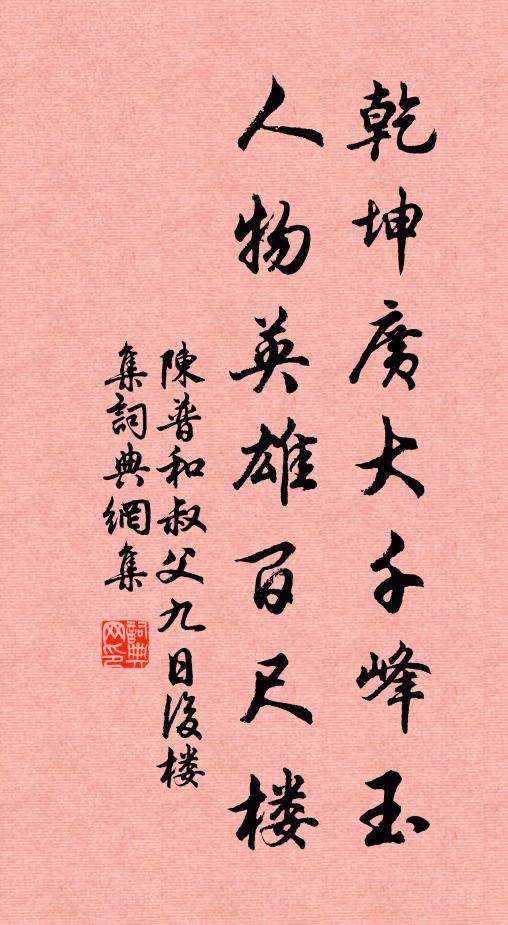 乾坤廣大千峰玉
人物英雄百尺楼
陳普和叔父九日後楼
集詞典網集
詞典
网印